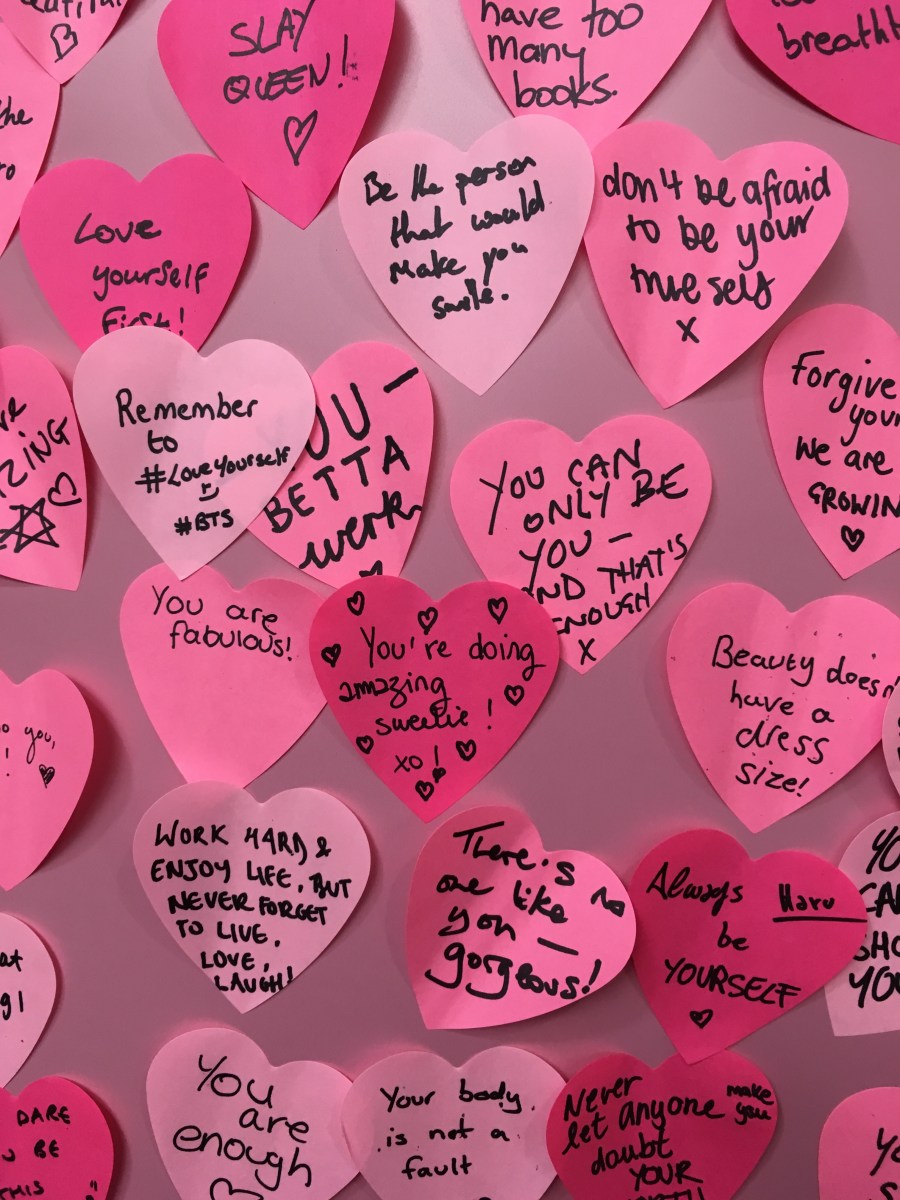 SLAY
QUEEN!
have too
many
books.
breatht
the
Love
yourself
First!
Be the person
that would
Make you
smile.
don't be afraid
to be your
true self
x
Remember
to
#Loveyourself
#BTS
BETTA
werk
YOU CAN
ONLY BE
YOU -
AND THAT'S
ENOUGH
X
Forgive
your
we are
GROWIN
You are
fabulous!
You're doing
amazing
sweetie!
xo!
Beauty doesn'
have a
dress
size!
you,
!
WORK HARD &
ENJOY LIFE, BUT
NEVER FORGET
TO LIVE,
LOVE,
LAUGH!
There's no
one like
you —
gorgeous!
Always
be
YOURSELF
Haru
YO
CA
SHO
YOU
at
g!
You
are
enough
Your body
is not a
fault
Never make
let anyone you
doubt
YOUR
DARE
BE
THIS